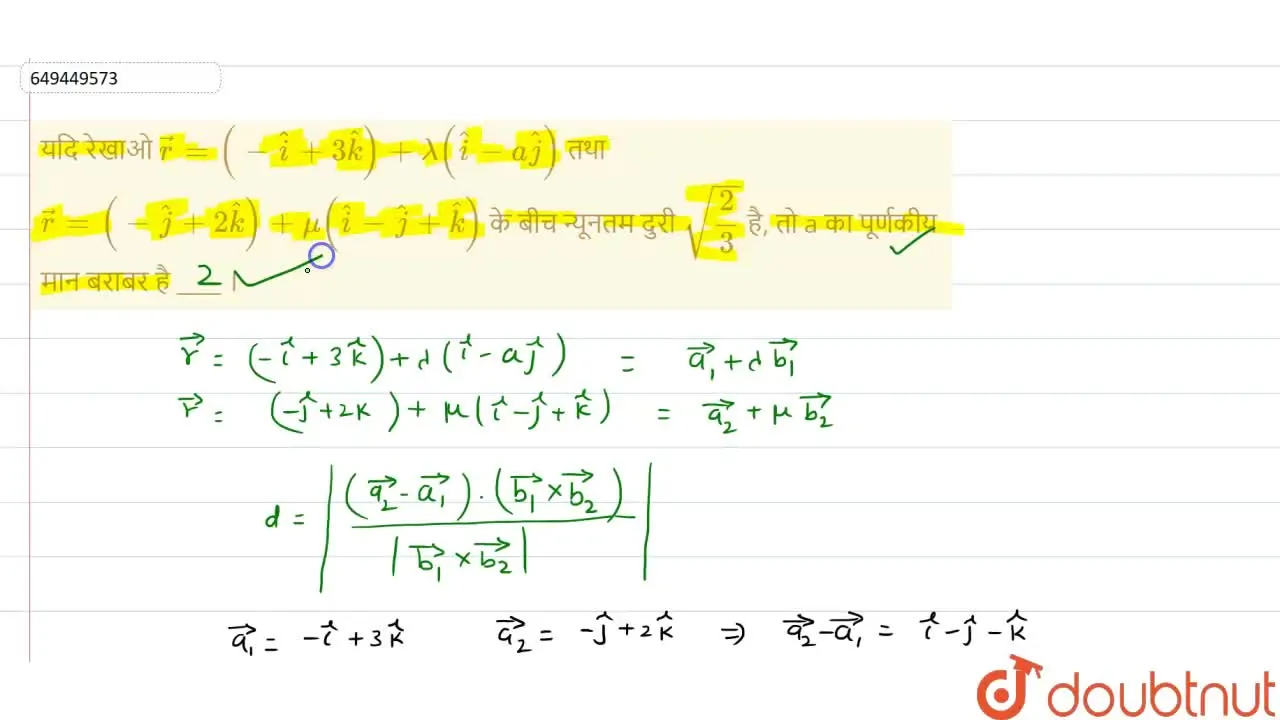 649449573
यदि रेखाओ r⃗ = (−î + 3k̂) + λ(î − aĵ) तथा
r⃗ = (−ĵ + 2k̂) + μ(î − ĵ + k̂) के बीच न्यूनतम दुरी √(2/3) है, तो a का पूर्णकीय
मान बराबर है __2__ ।
r⃗ = (−î + 3k̂) + λ(î − aĵ) = a⃗₁ + λb⃗₁
r⃗ = (−ĵ + 2k) + μ(î − ĵ + k̂) = a⃗₂ + μb⃗₂
d = | (a⃗₂ − a⃗₁) · (b⃗₁ × b⃗₂) / |b⃗₁ × b⃗₂| |
a⃗₁ = −î + 3k̂ a⃗₂ = −ĵ + 2k̂ ⇒ a⃗₂ − a⃗₁ = î − ĵ − k̂
doubtnut